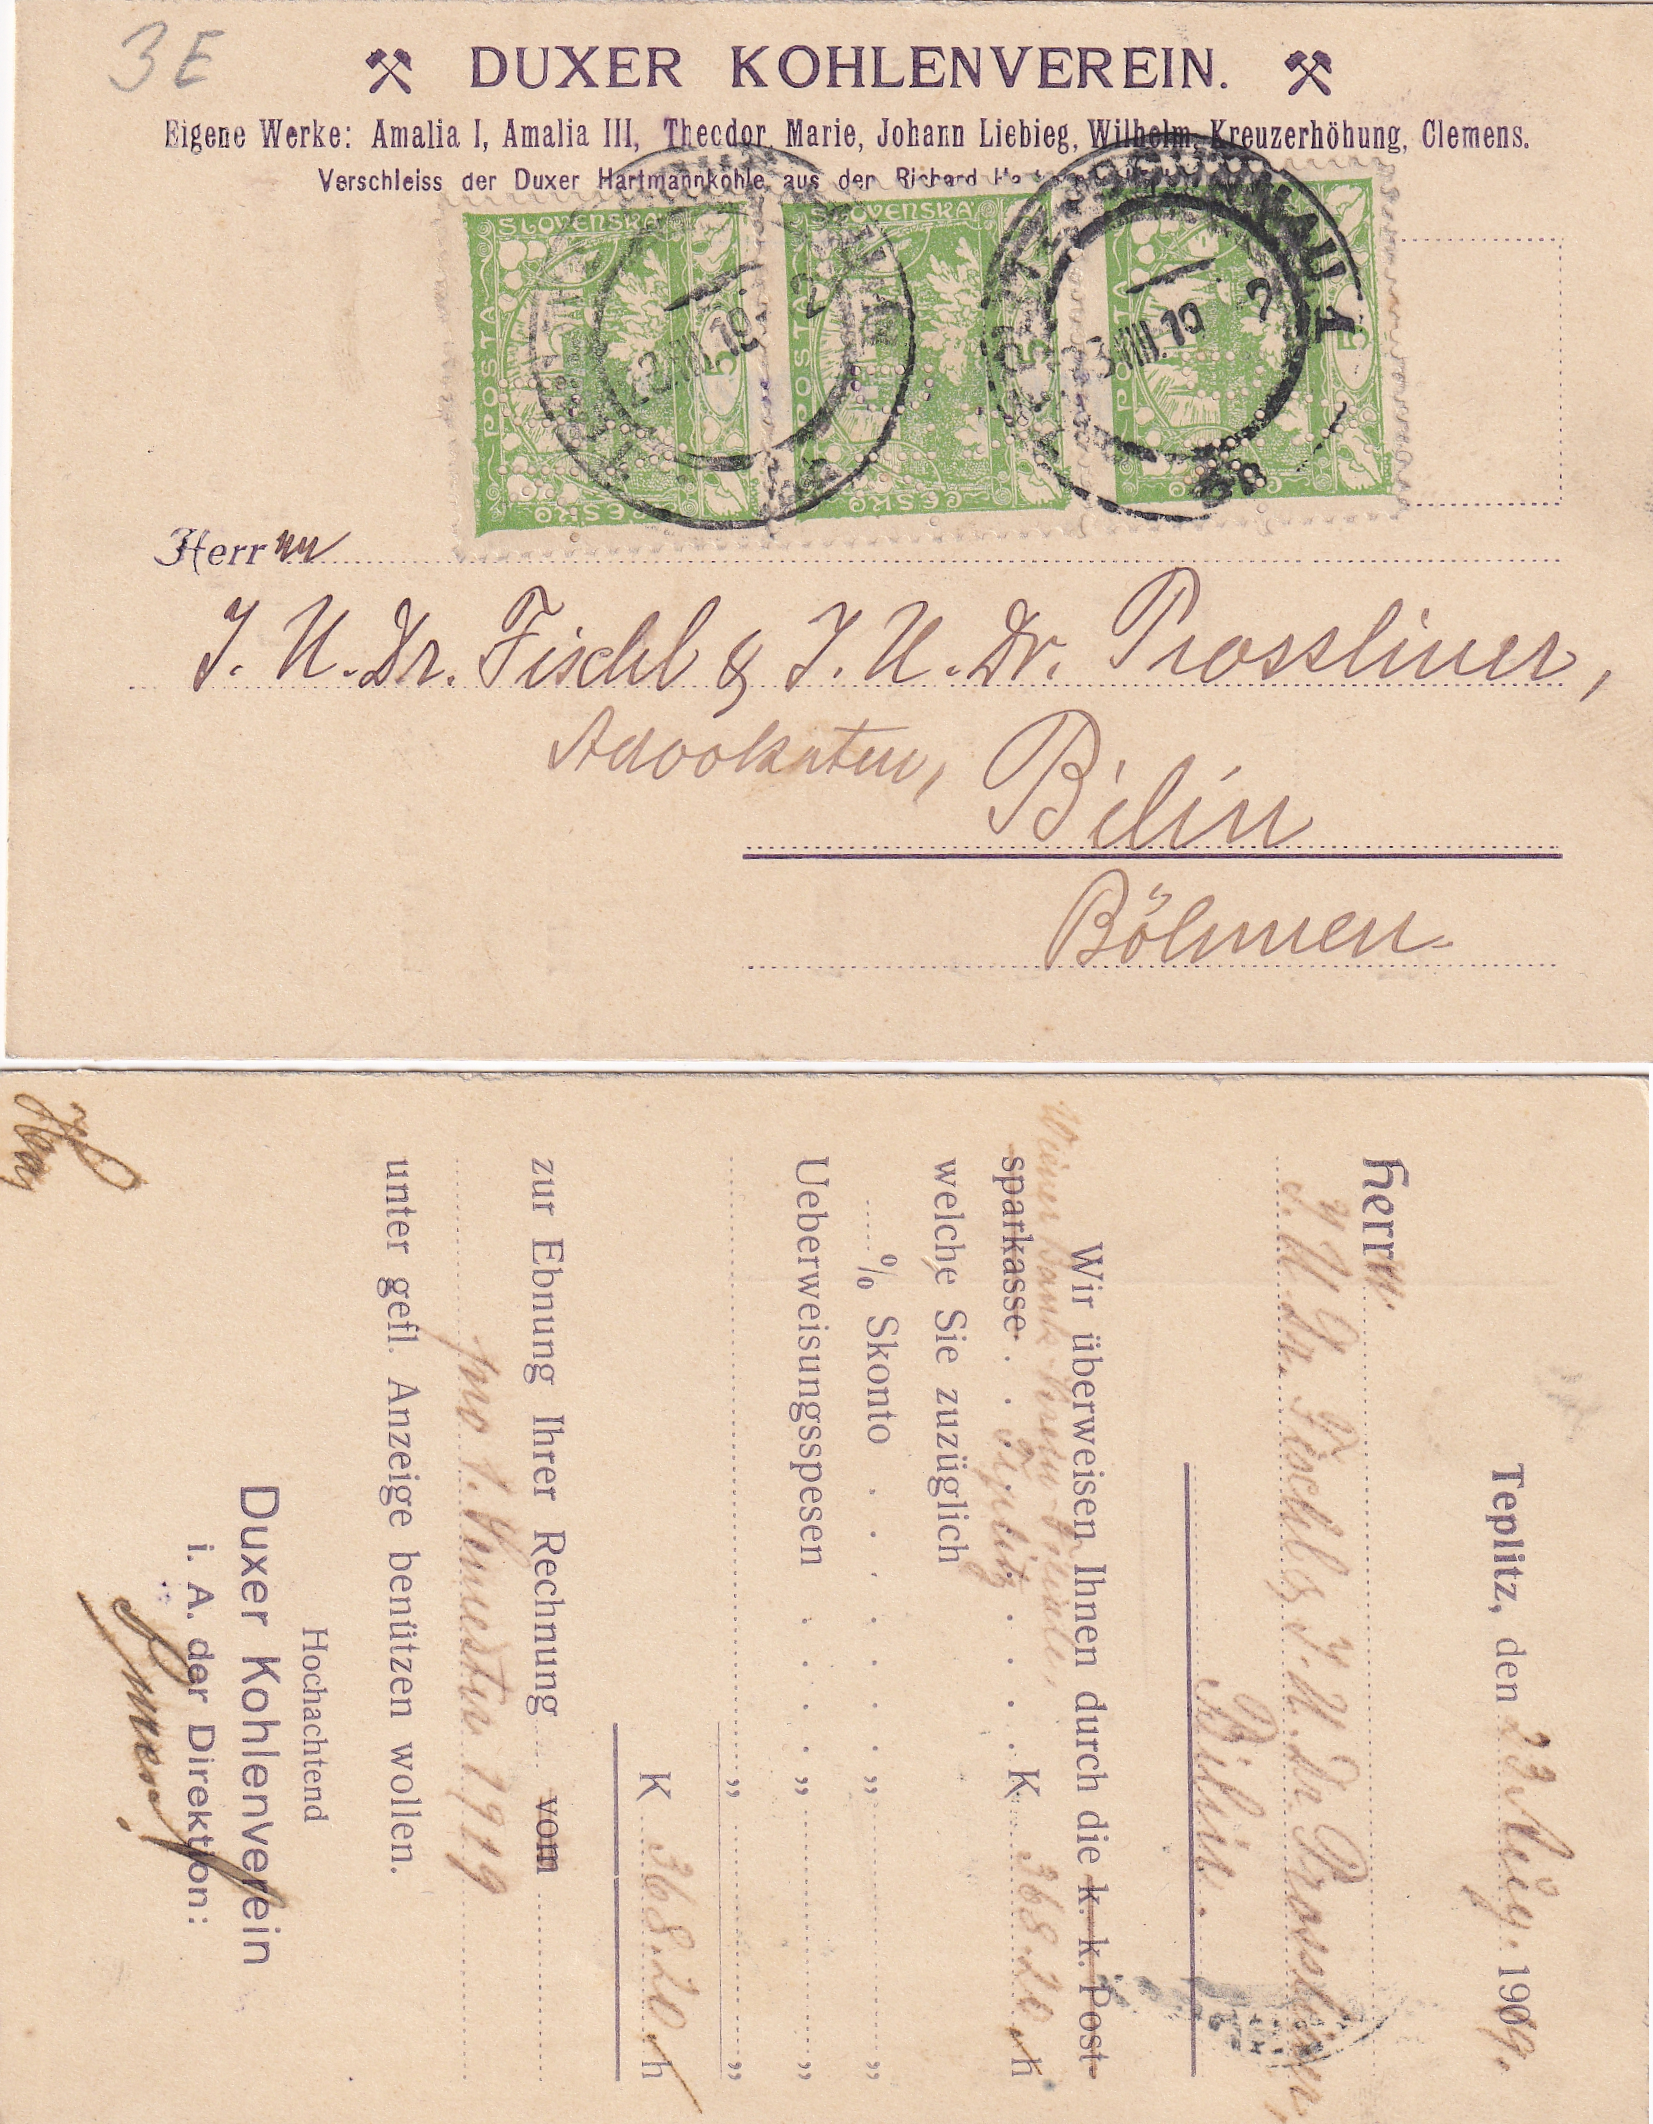 3 E
DUXER KOHLENVEREIN.
Eigene Werke: Amalia I, Amalia III, Theodor, Marie, Johann Liebieg, Wilhelm, Kreuzerhöhung, Clemens.
Verschleiss der Duxer Hartmannkohle aus der Richard
SLOVENSKÁ
POSTA
ČESKO
5
SLOVENSKÁ
POSTA
ČESKO
POSTA
ČESKO
23.VIII.19
2
VIII.19
2
Herrnn
J. U. Dr. Fischl & J. U. Dr. Prossliner,
Advokaten, Bilin
Böhmen.
Teplitz, den 23 Aug. 1909.
Herrn
J. U. Dr. Fischl & J. U. Dr. Prossliner,
Bilin.
Wir überweisen Ihnen durch die k. k. Post-
Wiener Bank-Verein Filiale,
sparkasse . . Teplitz . . . . K 368.20 h
welche Sie zuzüglich
% Skonto . . . . . . „ „
Ueberweisungsspesen . . . . „ „
„ „
K 368.20 h
zur Ebnung Ihrer Rechnung vom
pro 1. Semester 1919
unter gefl. Anzeige benützen wollen.
Hochachtend
Duxer Kohlenverein
i. A. der Direktion: